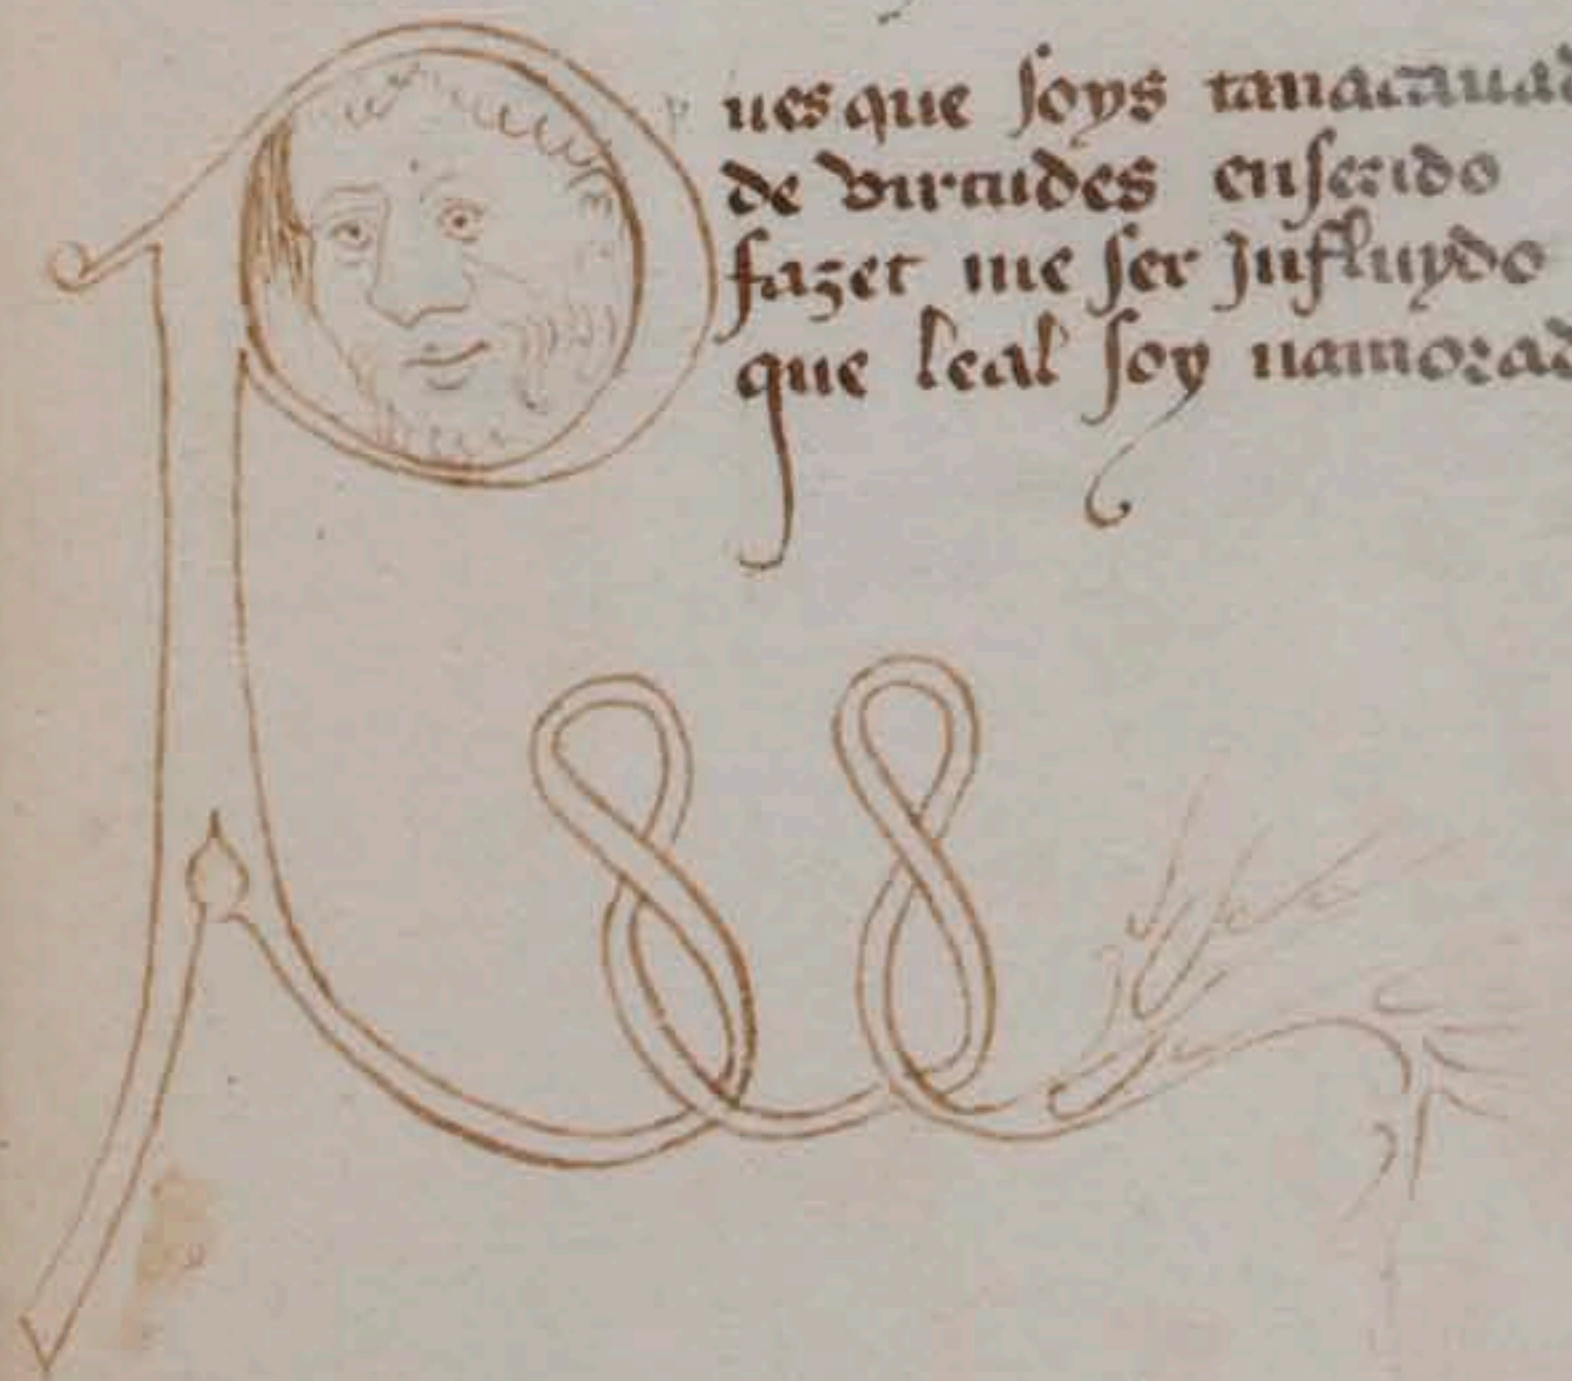 Pues que soys tan acauad
de virtudes enserido
fazet me ser jnfluydo
que leal soy namorad